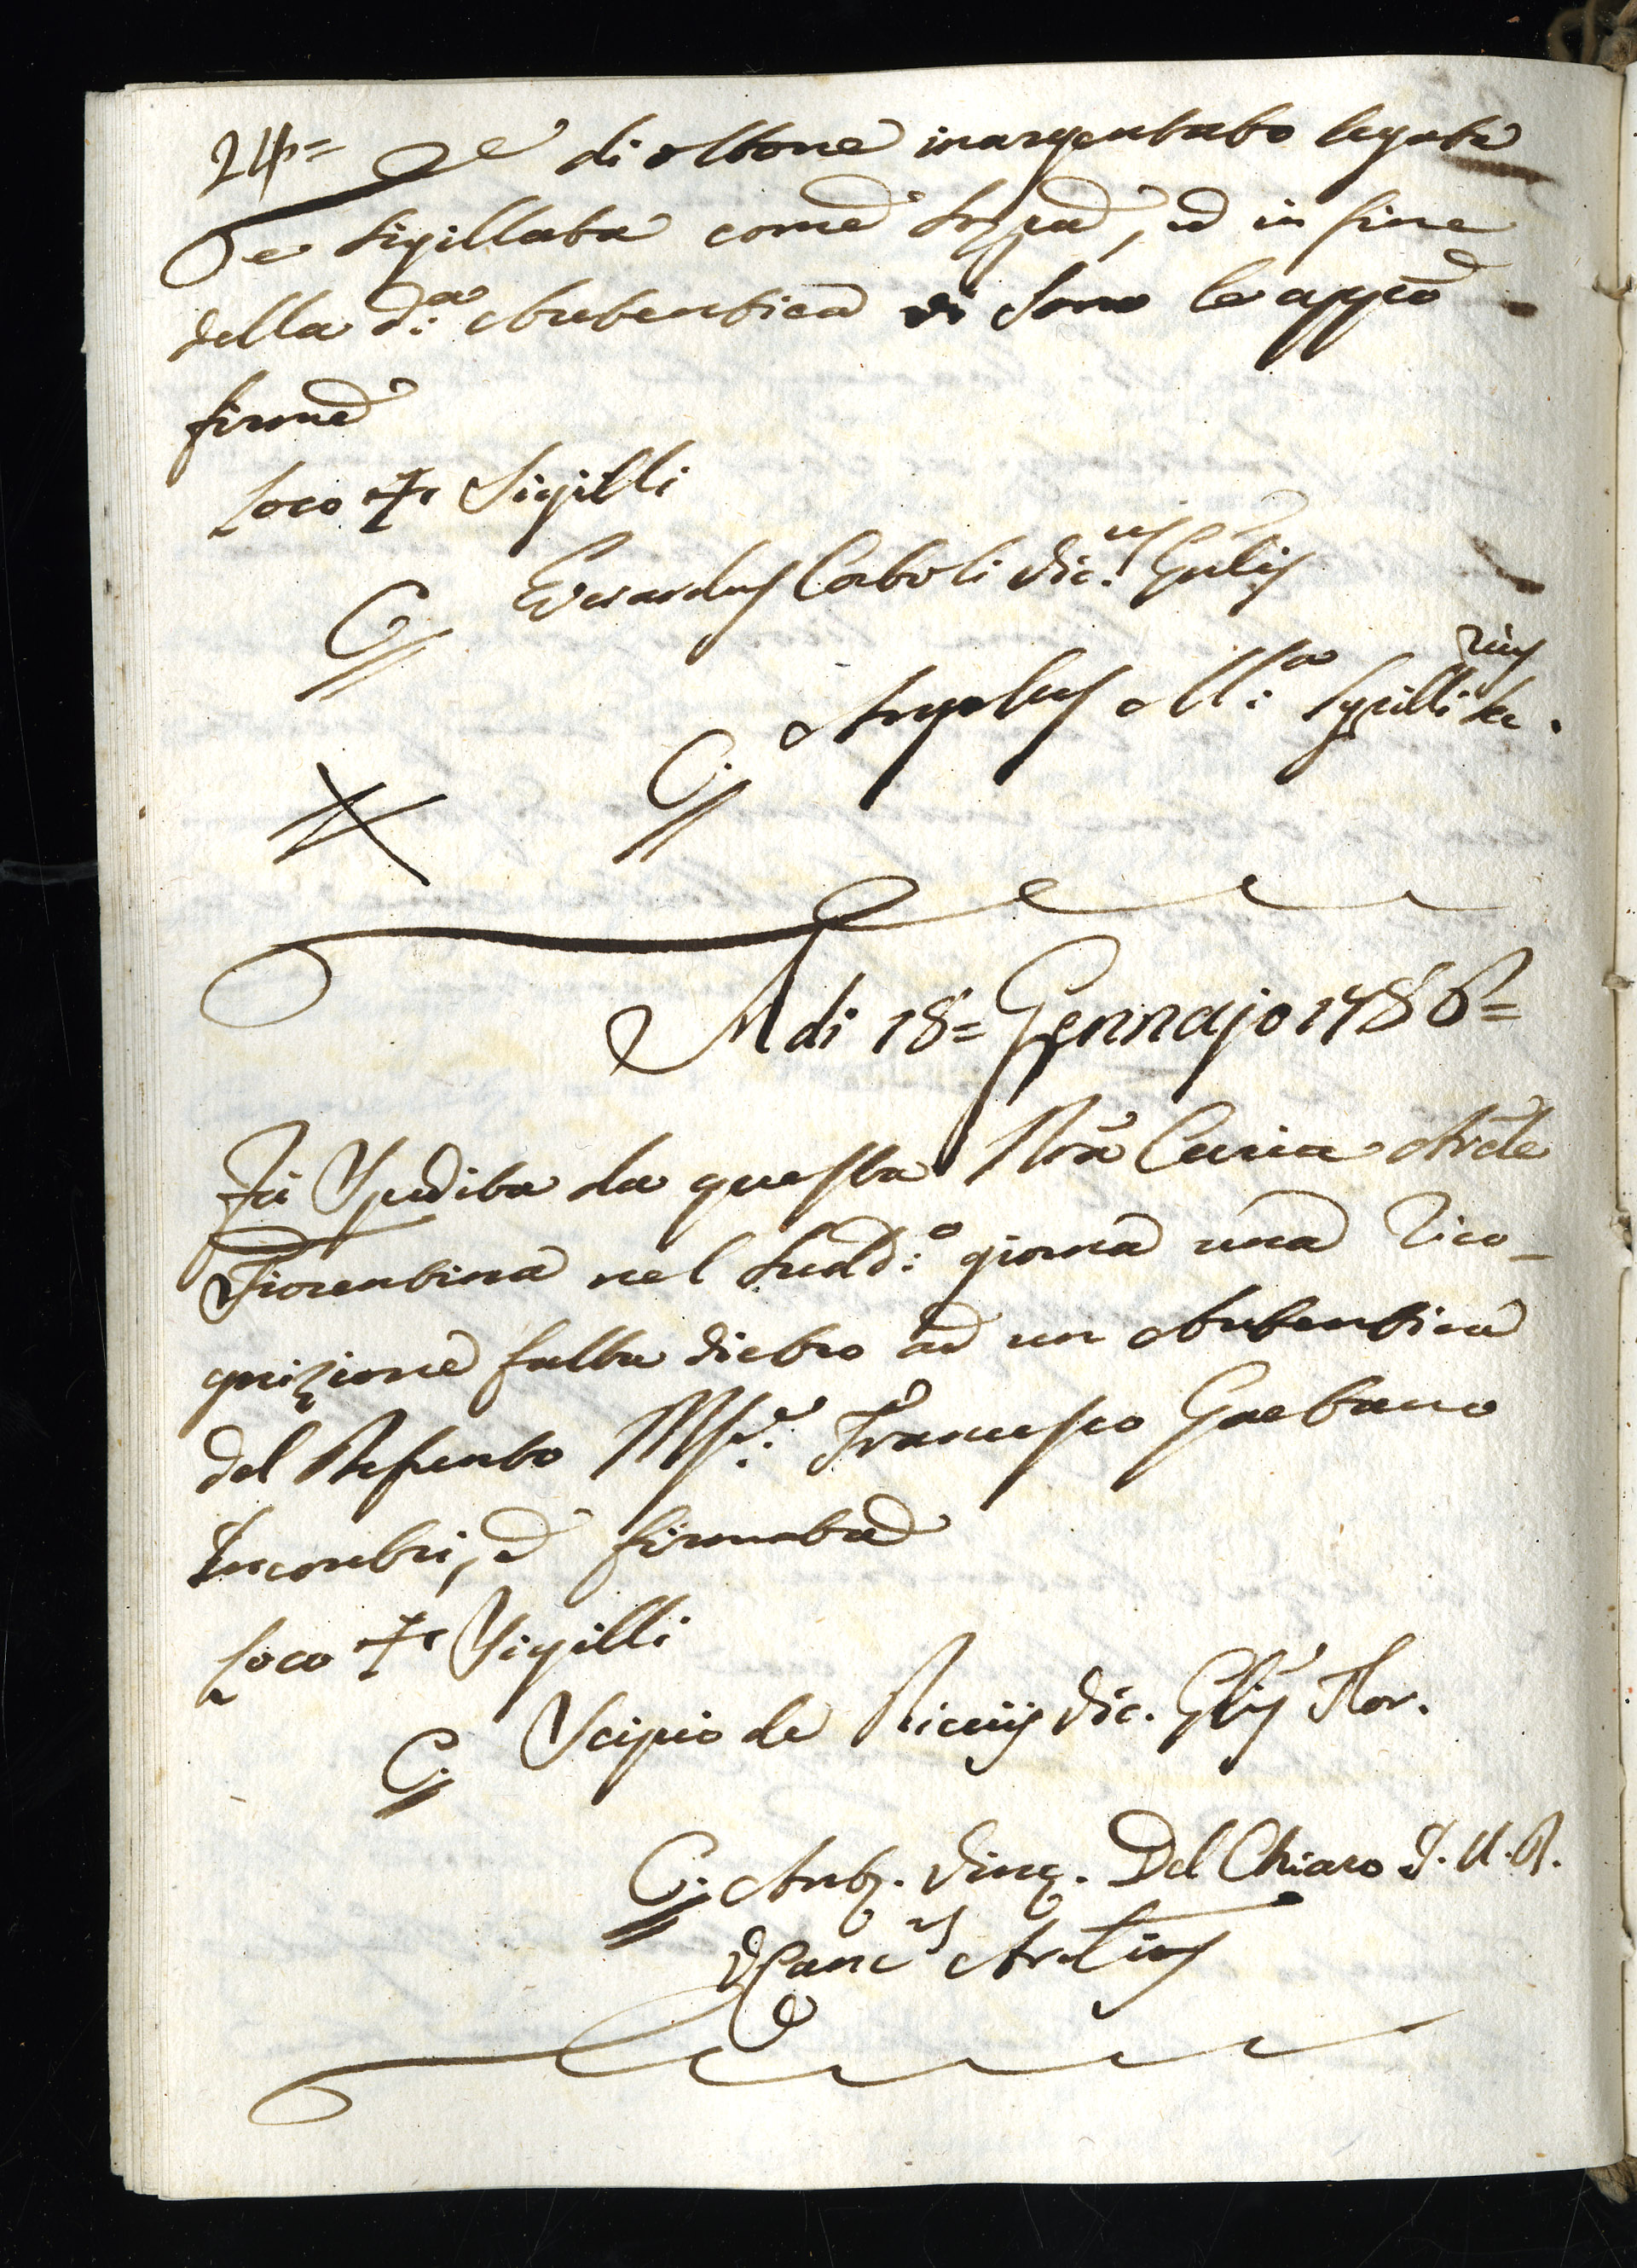 24=
di ottone inargentato legata
e sigillata come sopra, ed in fine
della d:a Autentica vi sono le appiè
firme
Loco + Sigilli
C. Everardus Vic. Gnlis
C. Angelus M:a
Adi 18= Gennajo 1786=
Fù Spedita da questa Nra Curia Arcle
Fiorentina nel sudd:o giorno una Rico-
gnizione fatta dietro ad un Autentica
del Defunto Msr. Francesco Gaetano
Incontri, e firmata
Loco + Sigilli
C. Scipio de Ricciis Vic. Glis Flor.
C. Ant. Vinc. Del Chiaro I. U. D.